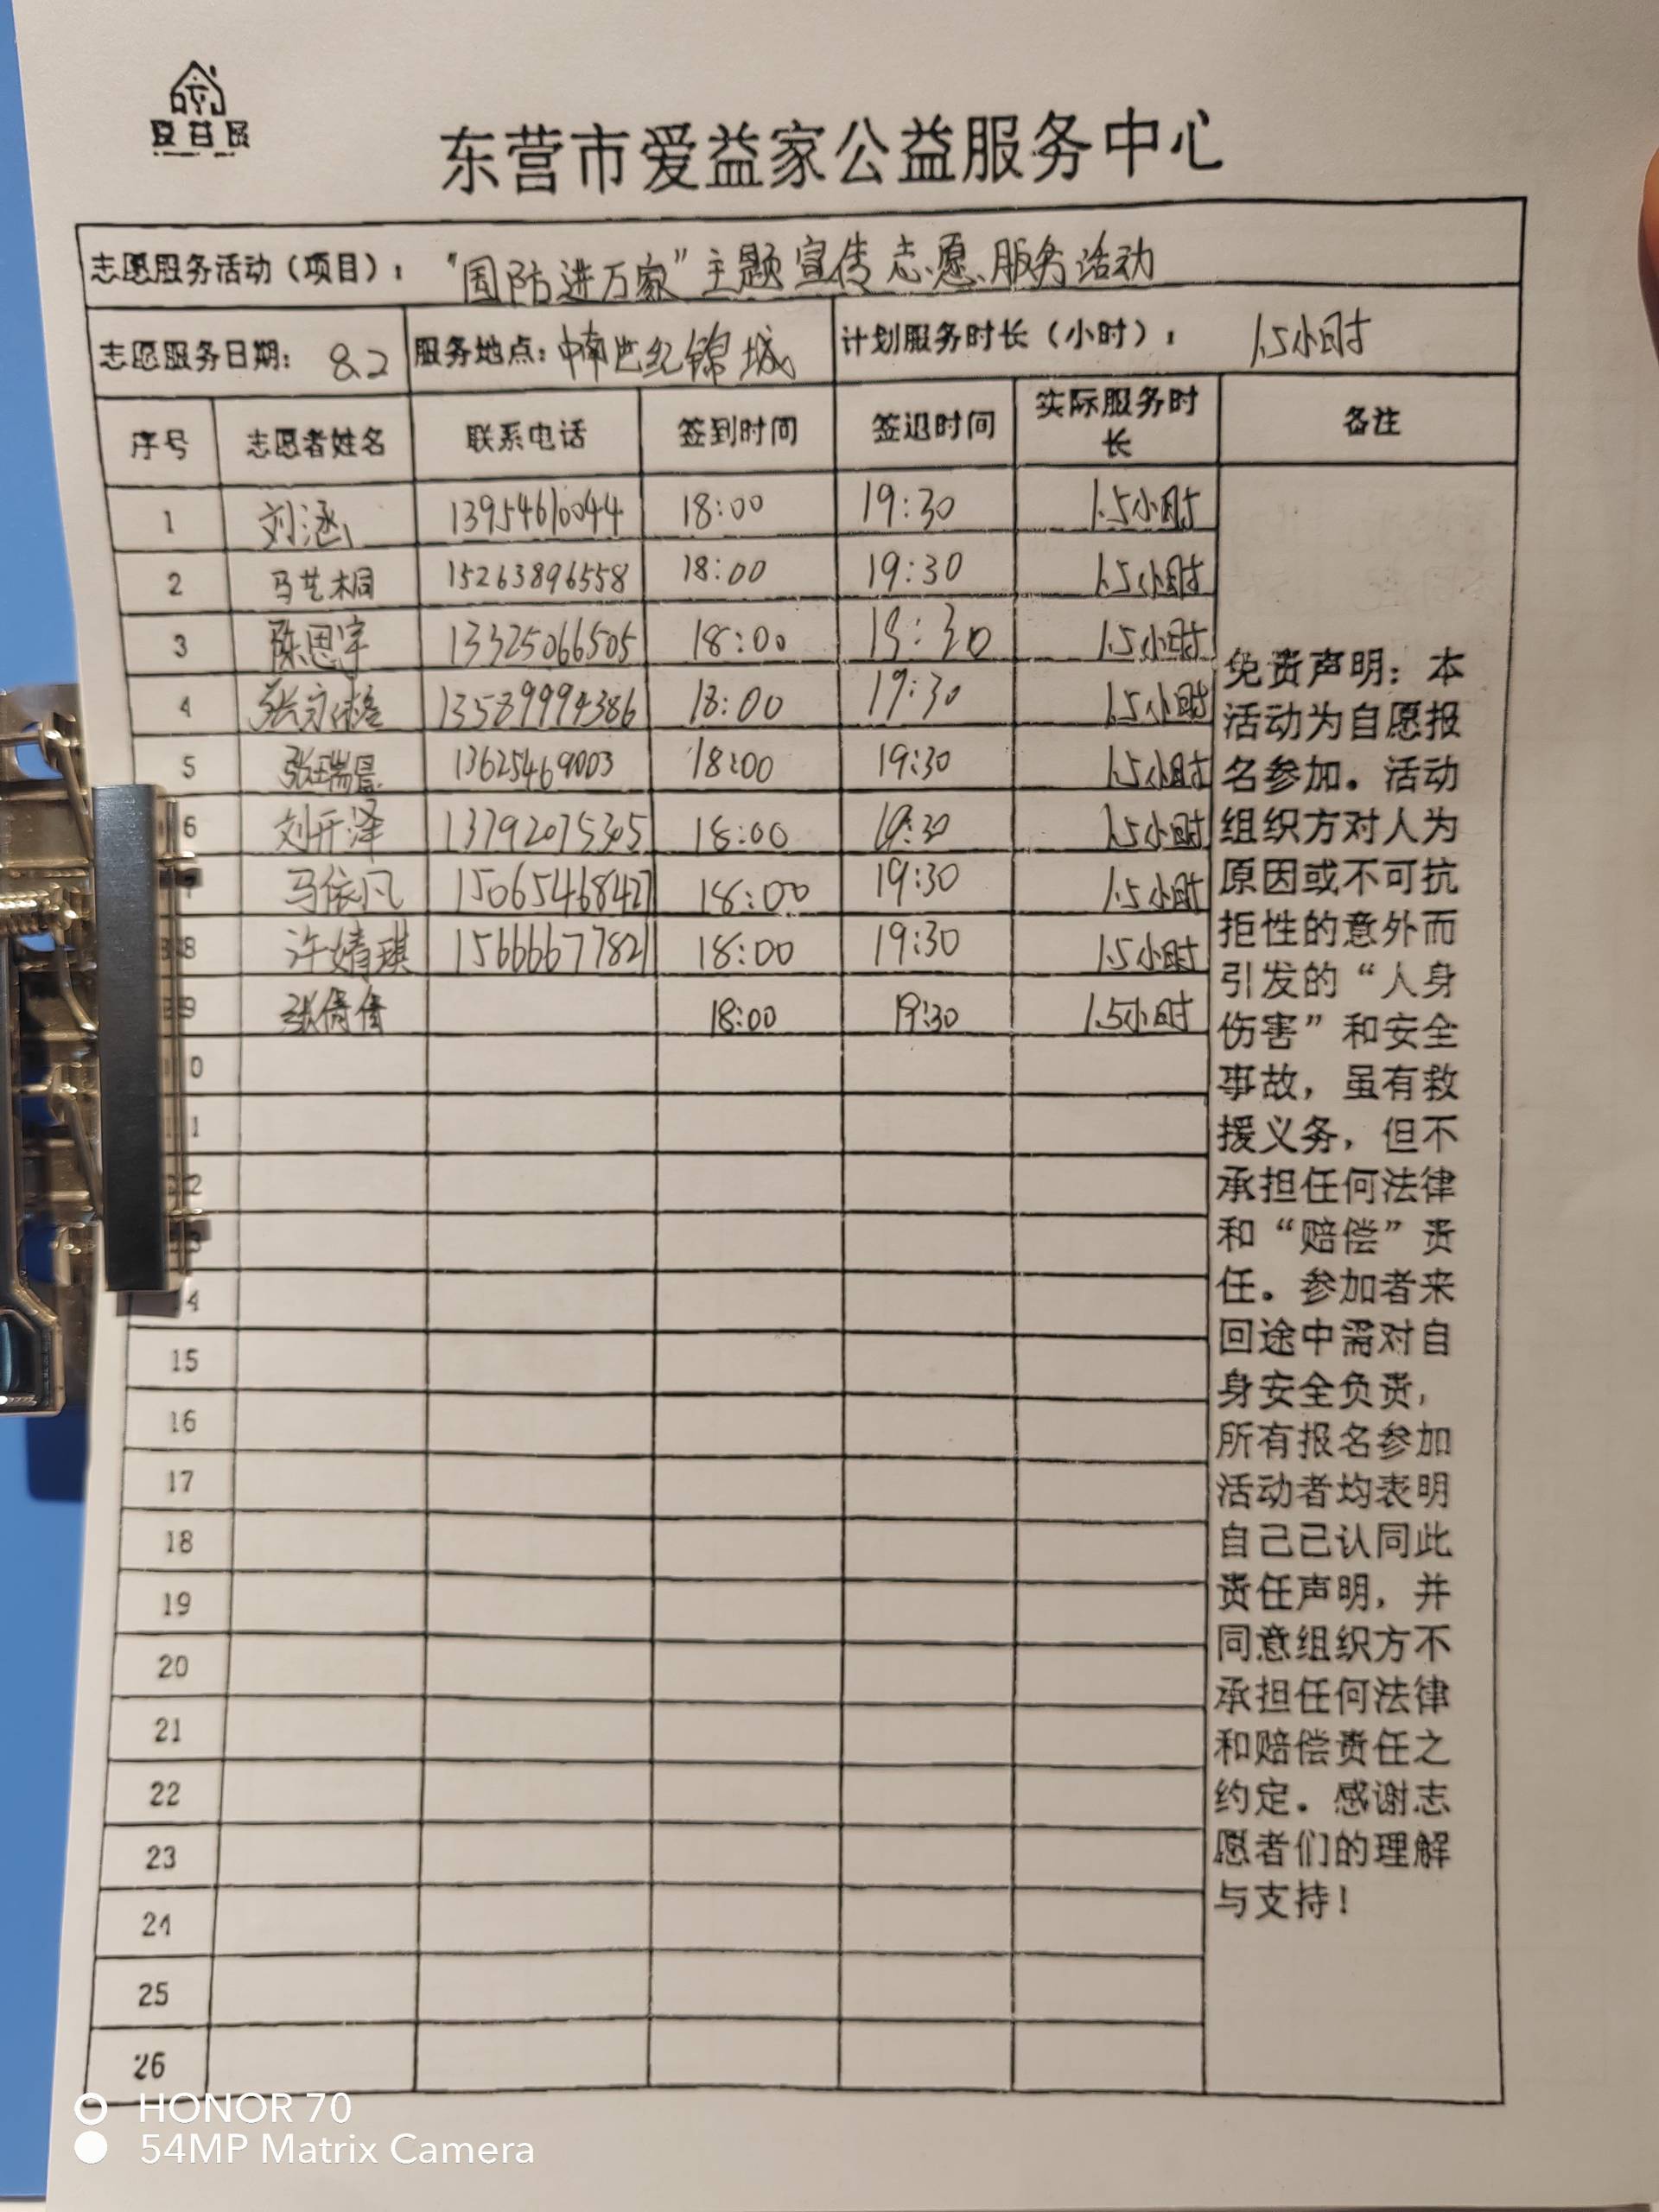 爱益家
东营市爱益家公益服务中心
志愿服务活动（项目）： “国防进万家”主题宣传志愿服务活动
志愿服务日期： 8.2 服务地点：中南世纪锦城 计划服务时长（小时）： 1.5小时
序号 志愿者姓名 联系电话 签到时间 签退时间 实际服务时长 备注
1 刘涵 13954610044 18:00 19:30 1.5小时
2 马艺桐 15263896558 18:00 19:30 1.5小时
3 陈思宇 13325066505 18:00 19:30 1.5小时
4 13589994386 18:00 19:30 1.5小时
5 张瑞晨 13625469003 18:00 19:30 1.5小时
6 刘开泽 13792075305 18:00 19:30 1.5小时
7 马依凡 15065468427 18:00 19:30 1.5小时
8 许婧琪 15666677821 18:00 19:30 1.5小时
9 张倩倩 18:00 19:30 1.5小时
0
1
2
3
4
15
16
17
18
19
20
21
22
23
24
25
26
免责声明：本
活动为自愿报
名参加。活动
组织方对人为
原因或不可抗
拒性的意外而
引发的“人身
伤害”和安全
事故，虽有救
援义务，但不
承担任何法律
和“赔偿”责
任。参加者来
回途中需对自
身安全负责，
所有报名参加
活动者均表明
自己已认同此
责任声明，并
同意组织方不
承担任何法律
和赔偿责任之
约定。感谢志
愿者们的理解
与支持！
HONOR 70
54MP Matrix Camera